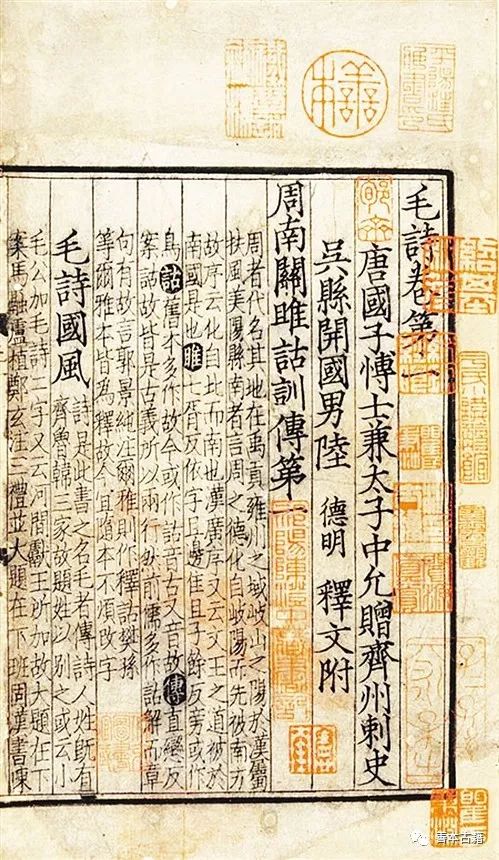 毛詩卷第一
唐國子博士兼太子中允贈齊州刺史
吳縣開國男陸 德明 釋文附
周南關雎詁訓傳第一
周者代名其地在禹貢雍州之域岐山之陽於漢屬
扶風美陽縣南者言周之德化自岐陽而先被南方
故序云化自北而南也漢廣序又云文王之道被於
南國是也雎七胥反依字且邊隹且子餘反旁或作
鳥詁舊本多作故今或作詁音古又音故傳直戀反
案詁故皆是古義所以兩行然前儒多作詁解而章
句有故言郭景純注爾雅則作釋詁樊孫
等爾雅本皆為釋故今宜隨本不煩改字
毛詩國風
詩是此書之名毛者傳詩人姓既有
齊魯韓三家故題姓以別之或云小
毛公加毛詩二字又云河間獻王所加故大題在下
案馬融盧植鄭玄注三禮並大題在下班固漢書陳
善本
善本古籍